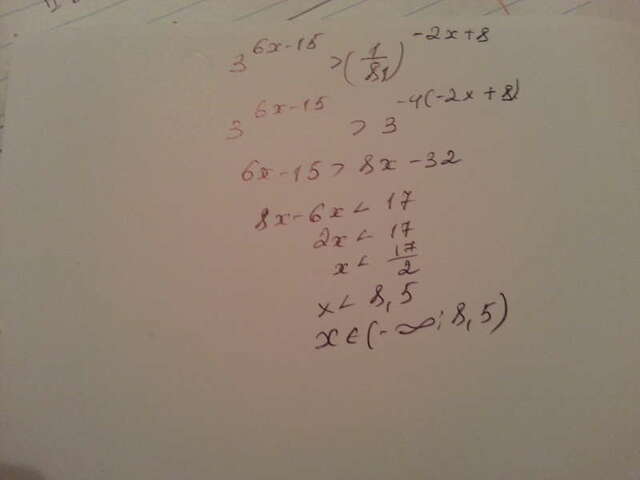 3^{6x-15} > (1/81)^{-2x+8}
3^{6x-15} > 3^{-4(-2x+8)}
6x-15 > 8x-32
8x-6x < 17
2x < 17
x < 17/2
x < 8,5
x ∈ (-∞; 8,5)